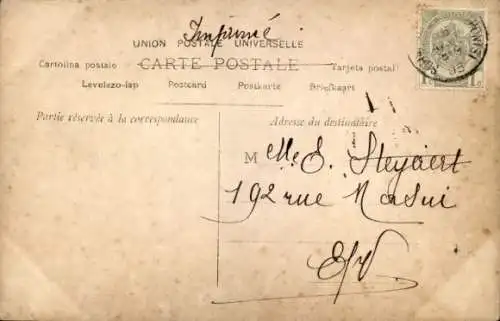 Imprimé
UNION POSTALE UNIVERSELLE
Cartolina postale CARTE POSTALE Tarjeta postal
Levelezo-lap Postcard Postkarte Briefkaart
Partie réservée à la correspondance
Adresse du destinataire
M lle E. Steyaert
192 rue Masui
E/V.